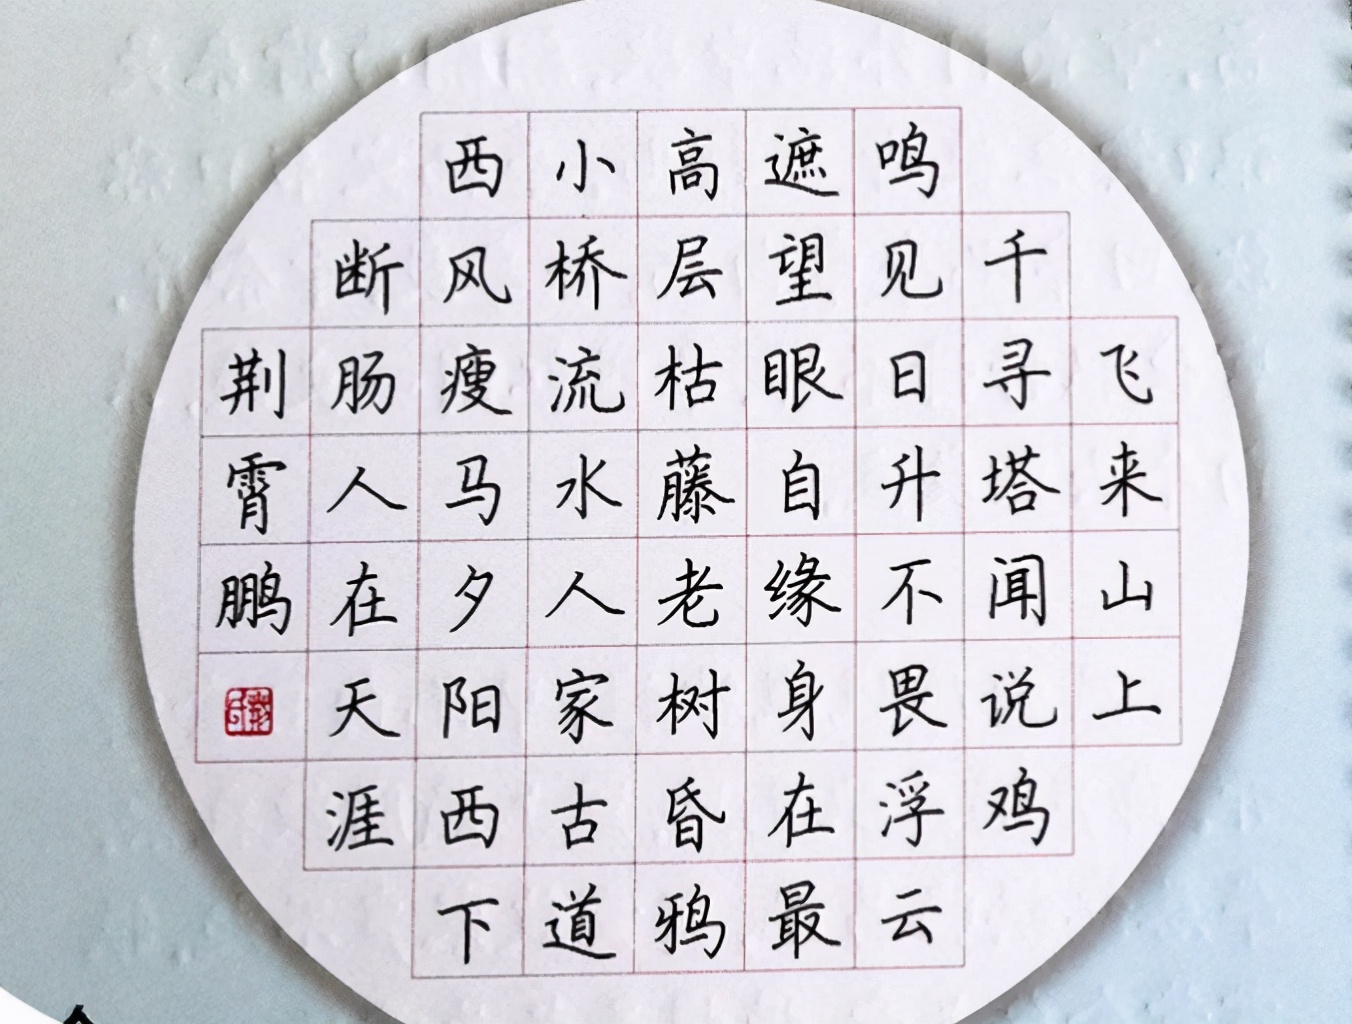 飞来山上
千寻塔闻说鸡
鸣见日升不畏浮云
遮望眼自缘身在最
高层枯藤老树昏鸦
小桥流水人家古道
西风瘦马夕阳西下
断肠人在天涯
荆霄鹏